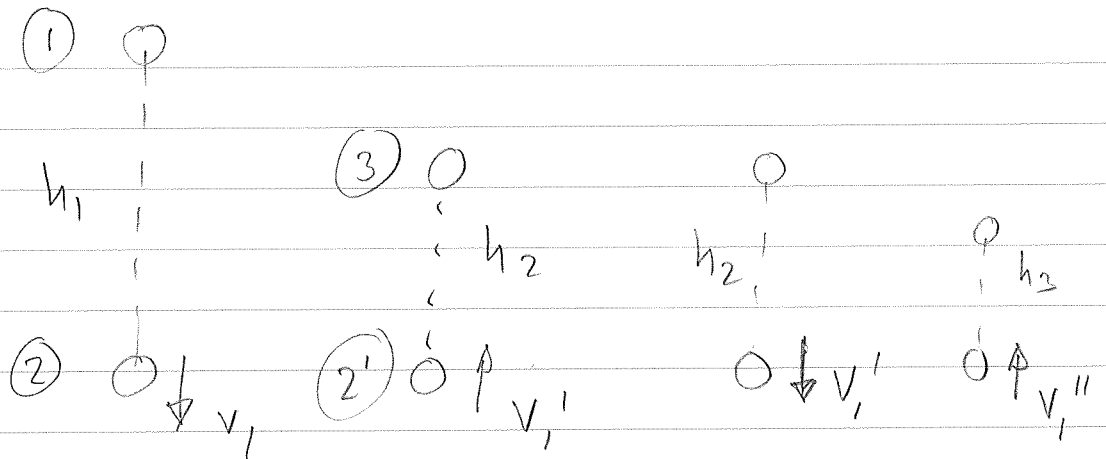 ①
③
h₁
h₂
h₂
h₃
②
v₁
②'
v₁'
v₁'
v₁''